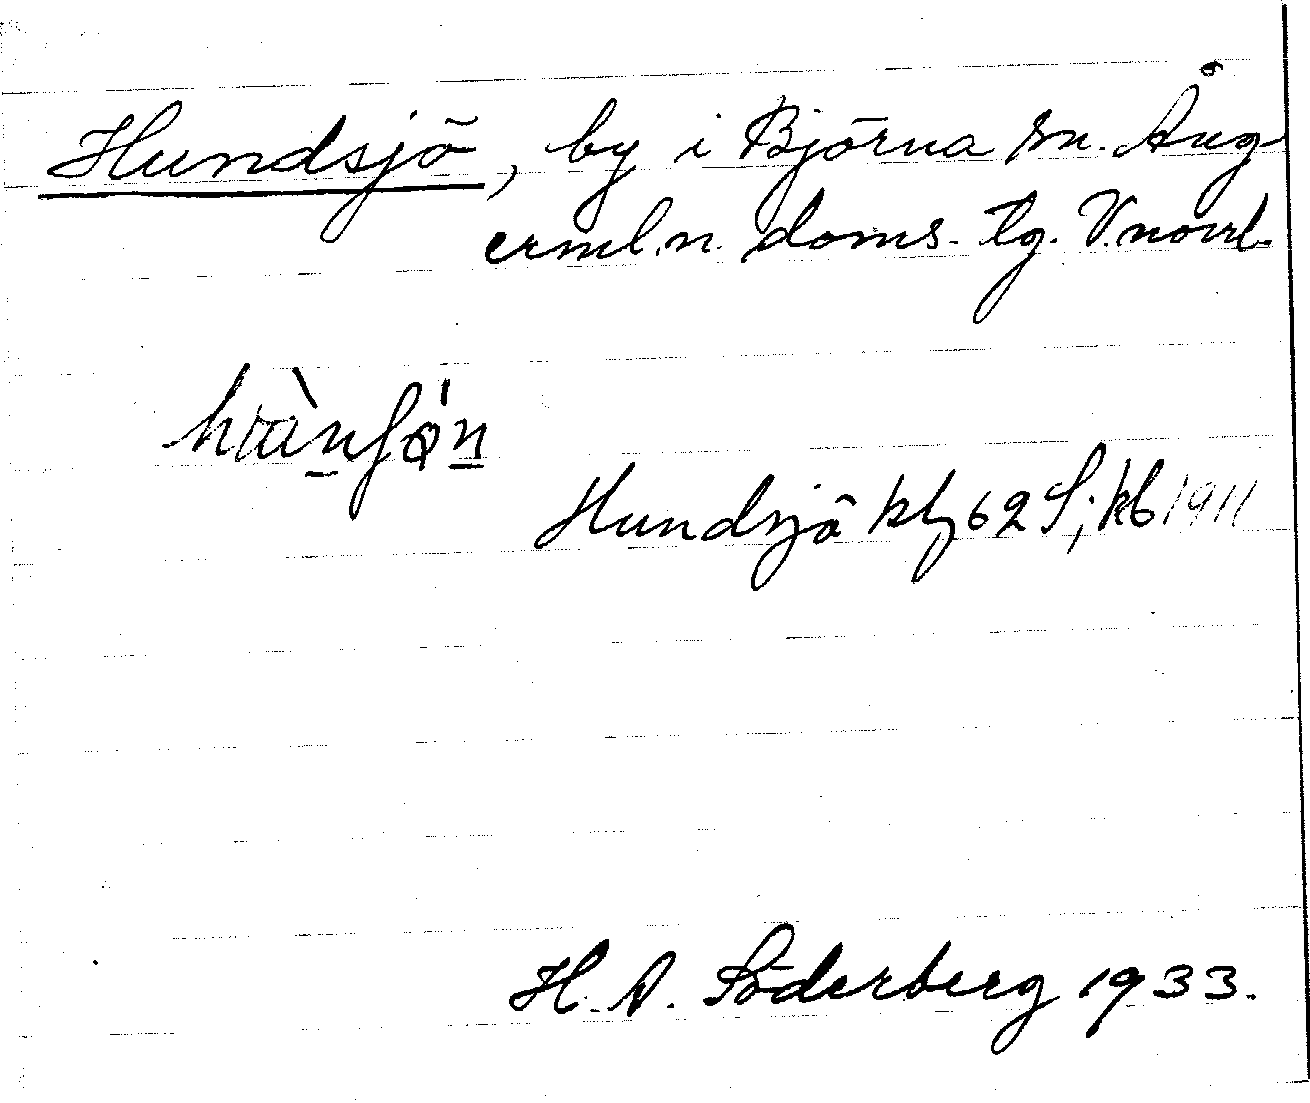 Hundsjö, by i Björna sn. Ång
erml.n. doms. tg. V.norrl.
Hundsjö kbl 62 S; kb 1911
H. A. Söderberg 1933.